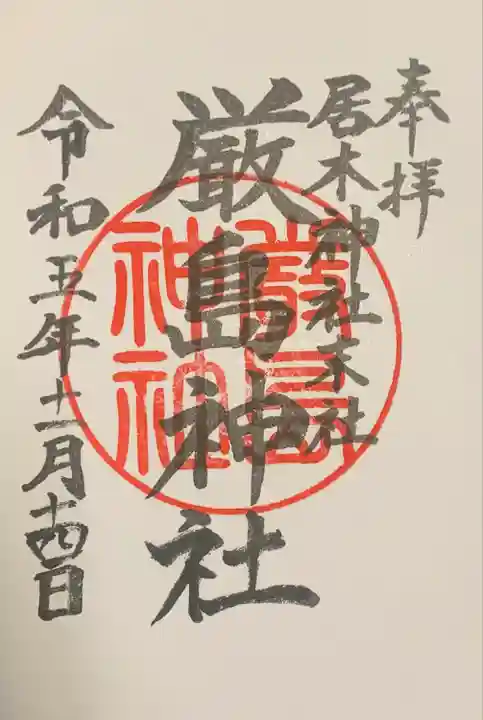 奉拝
居木神社末社
厳島神社
嚴島
神社
令和五年十二月十四日